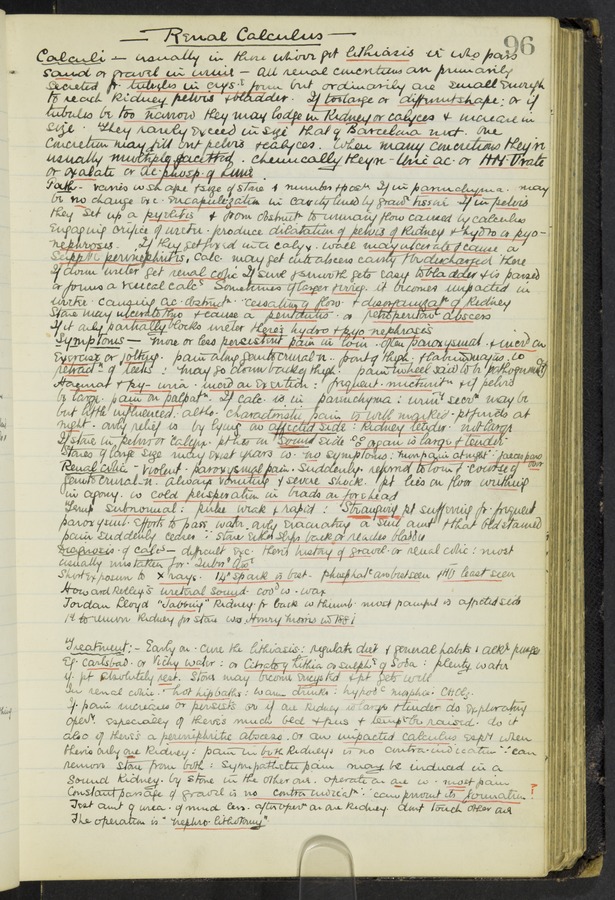 96
— Renal Calculus —
Calculi — usually in those who get lithiasis ie who pass
sand or gravel in urine — All renal concretions are primarily
secreted fr tubules in crys. form but ordinarily are small enough
to reach Kidney pelvis & bladder. If too large or different shape: or if
tubules be too narrow they may lodge in Kidney or calyces & increase in
size. They rarely exceed in size that of Barcelona nut. One
concretion may fill out pelvis & calyces. When many concretions they're
usually multiple facetted. Chemically they're Uric ac. or Urate
or oxalate or phosp. of lime
Path — varies w shape & size of stone & number & posn. If in parenchyma may
be no change exc. encapsulization in cavity lined by granr tissue. If in pelvis
they set up a pyelitis & from obstruct to urinary flow caused by calculus
engaging orifice of ureter produce dilatation of pelvis of Kidney & hydro or pyo-
nephrosis. If they get fixed in a calyx wall may ulcerate & cause a
perinephritis, calc. may get into abscess cavity & be discharged there
If down ureter get renal colic. If small & smooth gets easy to bladder & is passed
or forms a vesical calc. Sometimes if larger & irreg. it becomes impacted in
ureter causing ac. obstruct. cessation of flow & disorganisatn of Kidney
Stone may ulcerate thro & cause a peritonitis or retroperiton abscess
If it only partially blocks ureter there's hydro & pyo nephrosis
Symptoms — more or less persistent pain in loin. often paroxysmal & incrd on
exercise or jolting. pain along genito crural n. front of thigh
retractn of testis: may go down back of thigh. pain in heel said to be pathognomic
Haemat & py-uria incrd on exertion: frequent micturitn & if pelvis
be large pain on palpatn. If calc is in parenchyma: urine secrn may be
but little influenced. altho characteristic pain is well marked. pt finds at
night only relief is by lying on affected side: Kidney tender not large
If stone in pelvis or calyx pt lies on sound side organ is large & tender
Stones of large size may exist years w. no symptoms.
Renal colic — violent paroxysmal pain. Suddenly. referred to loin & course of
genito crural n. Always vomiting & severe shock. pt lies on floor writhing
in agony w cold perspiration in beads on forehead
Temp subnormal: pulse weak & rapid: Strangury pt suffering fr frequent
paroxysml efforts to pass water only evacuating a small amt & that blood stained
pain suddenly ceases stone either slips back or reaches bladder
Diagnosis of calc — difficult exc. there's history of gravel or renal colic: most
usually mistaken for
Short exposure to X rays. 14" spark is best. Phosphatic are best seen & least seen
Howard Kelley's ureteral sound covd w. wax
Jordan Lloyd "Jabbing" Kidney fr back w thumb most painful is affected side
1st to remove Kidney for stone was Henry Morris in 1881
Treatment: — Early on. cure the lithiasis: regulate diet & general habits: alkal purges
Eg carlsbad or Vichy water: or Citrate of lithia or sulph. of Soda: plenty water
If pt absolutely rest. Stone may become encysted & pt gets well
In renal colic: hot hip baths: warm drinks: hypod. morphia CHCl3.
If pain increases or persists or if one Kidney is large & tender do exploratory
opern. especially if there's much bld & pus & temp be raised. do it
also if there's a perinephritic abscess. or an impacted calculus espy when
there's only one Kidney: pain in both Kidneys is no contra-indication can
remove stone from both: sympathetic pain may be induced in a
sound Kidney by stone in the other one. operate on one w. most pain
Constant passage of gravel is no contra indicatn can prevent its formation!
Test amt of urea. if much less. after opern on one Kidney dont touch other one
The operation is "nephro-lithotomy"